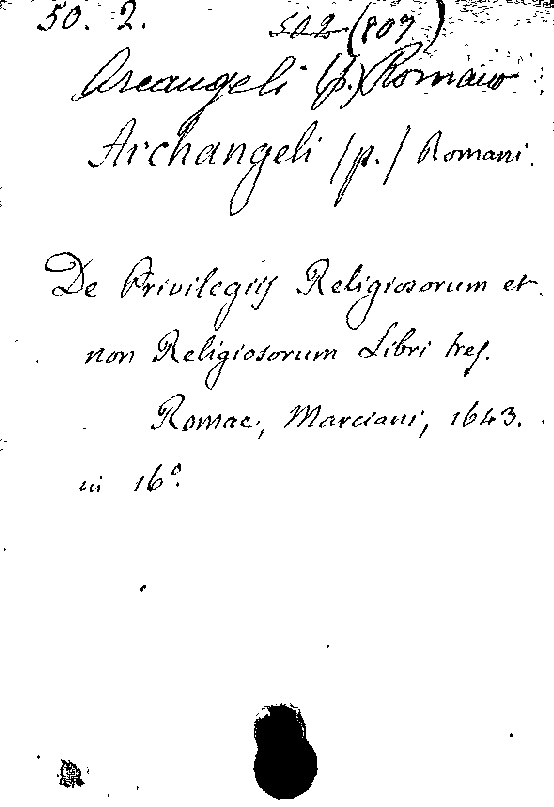 50. 2. 502 (807)
Arcangeli (p.) Romano
Archangeli (p.) Romani.
De Privilegiis Religiosorum et
non Religiosorum Libri tres.
Romae, Marciani, 1643.
in 16°.